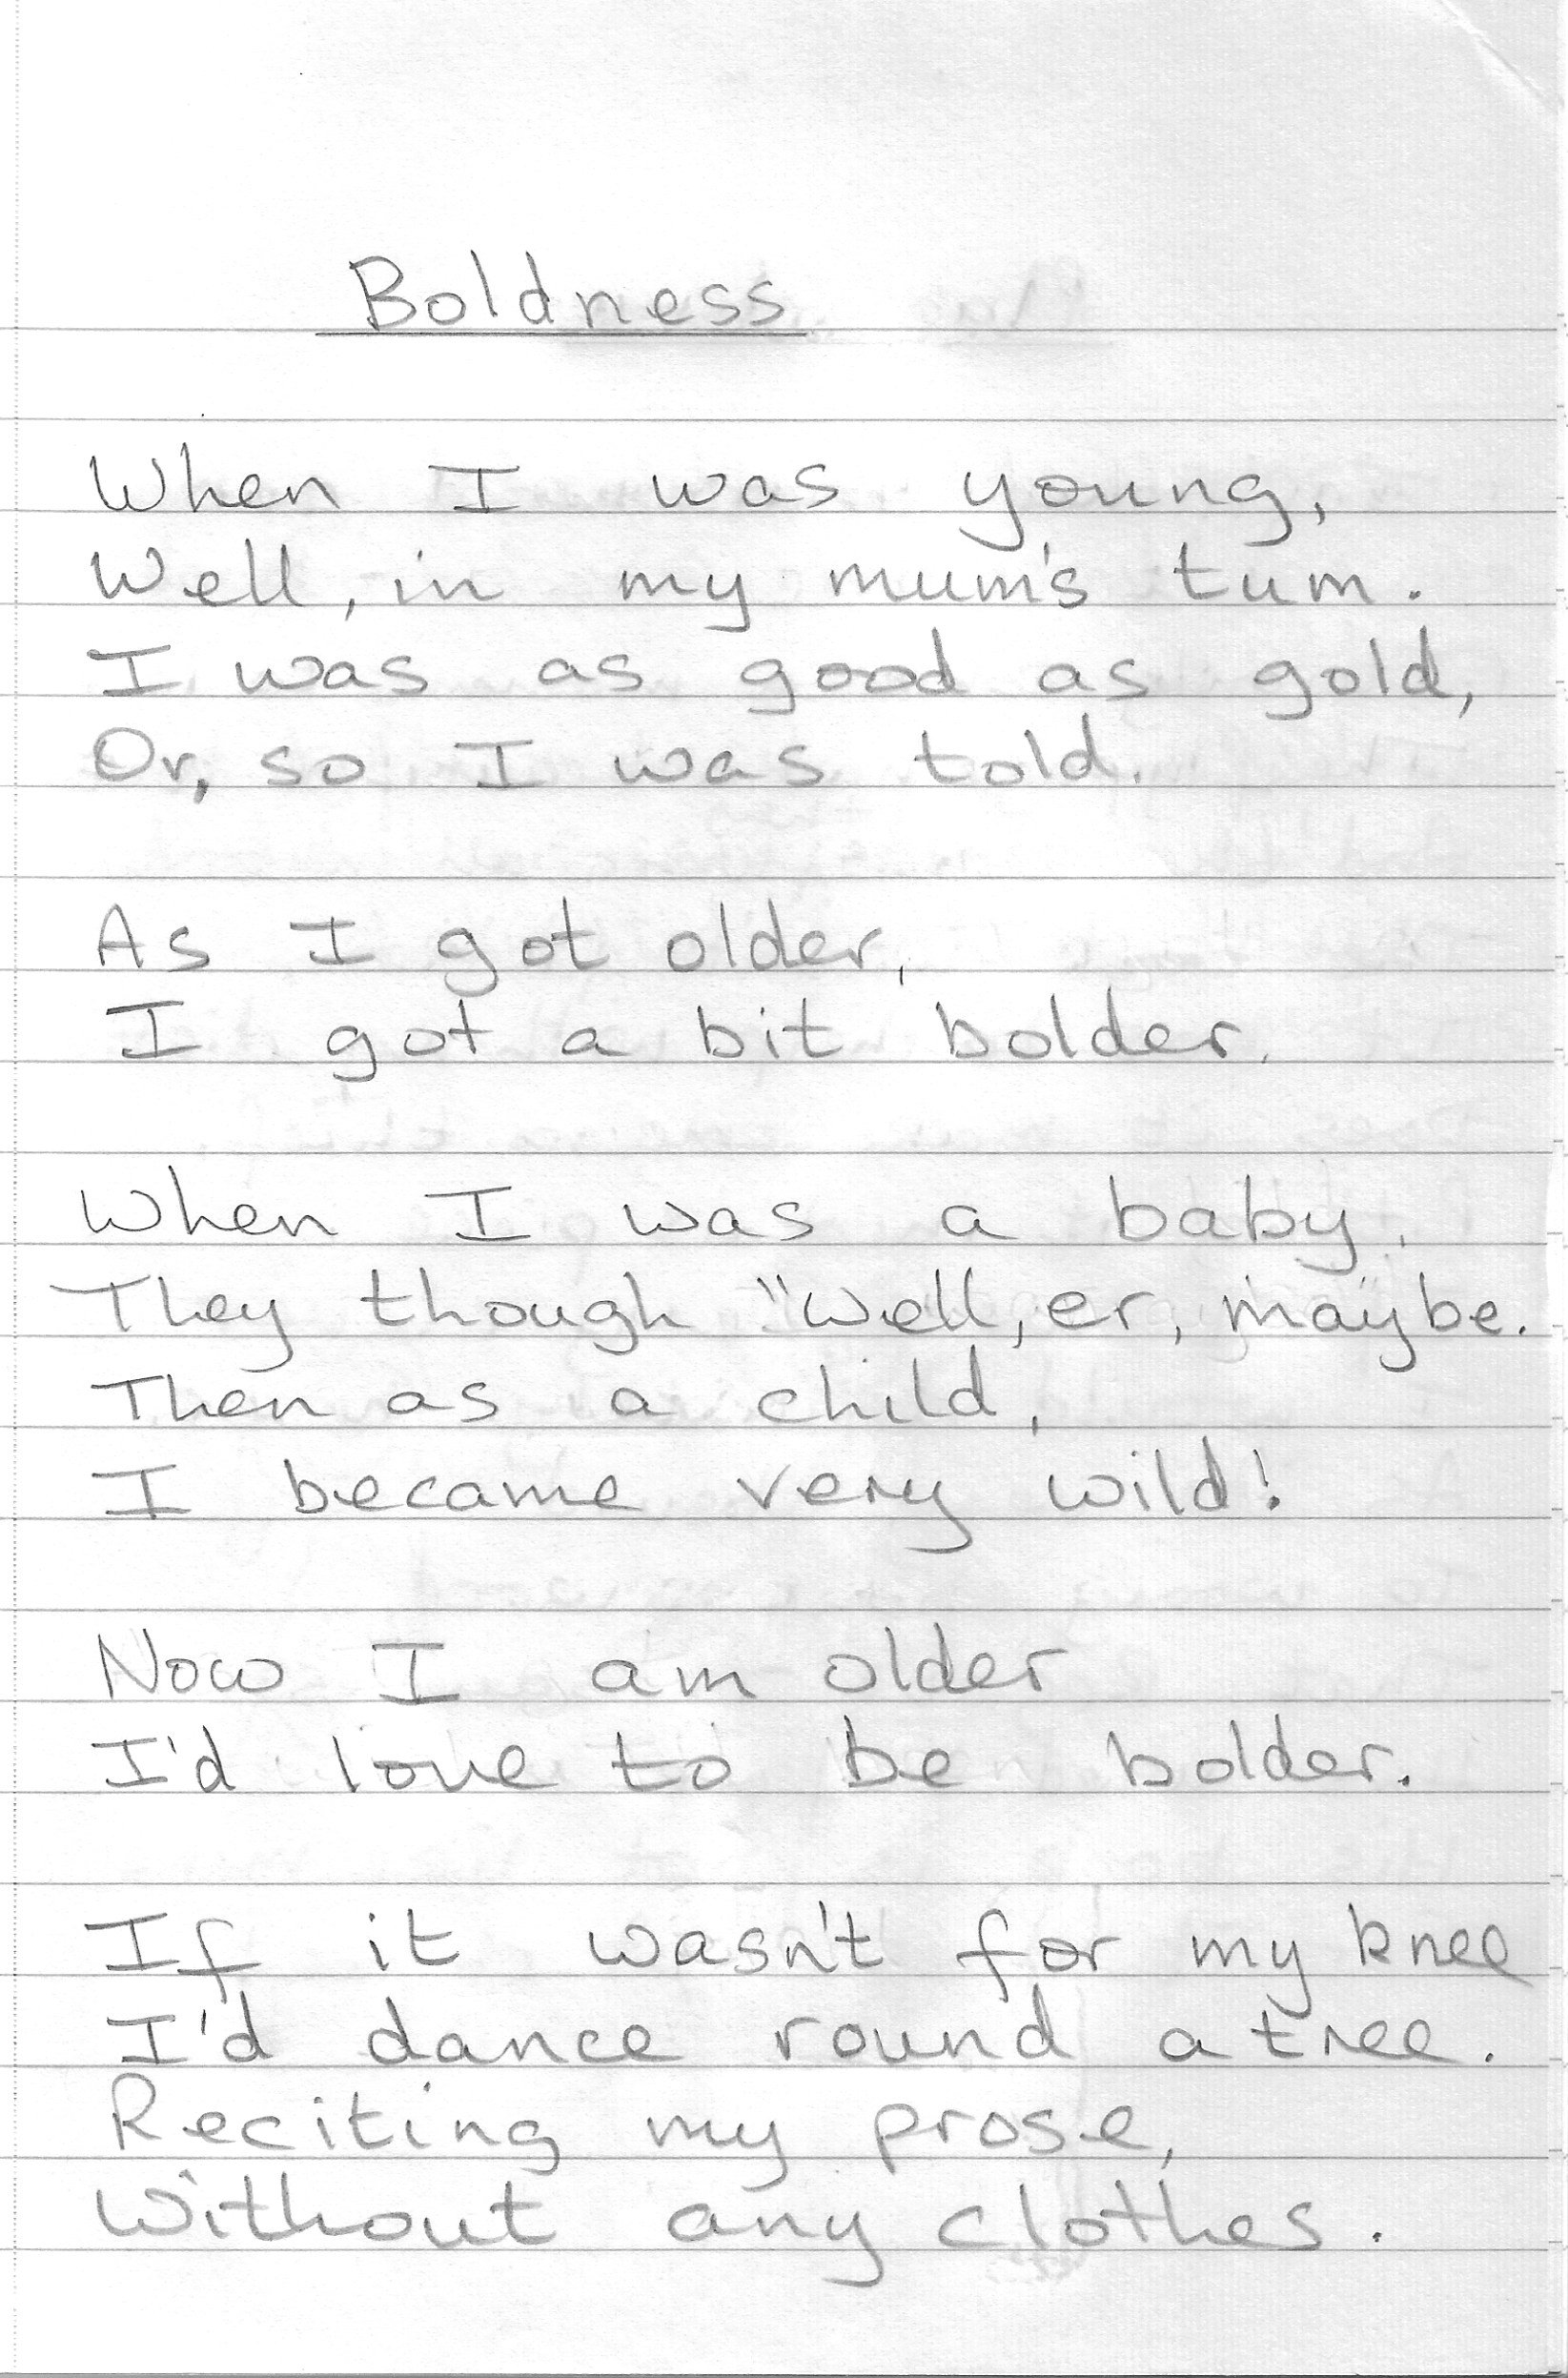 Boldness
When I was young,
Well, in my mum's tum.
I was as good as gold,
Or, so I was told.
As I got older,
I got a bit bolder.
When I was a baby.
They though "Well, er, maybe.
Then as a child,
I became very wild!
Now I am older
I'd love to be bolder.
If it wasn't for my knee
I'd dance round a tree.
Reciting my prose,
Without any clothes.